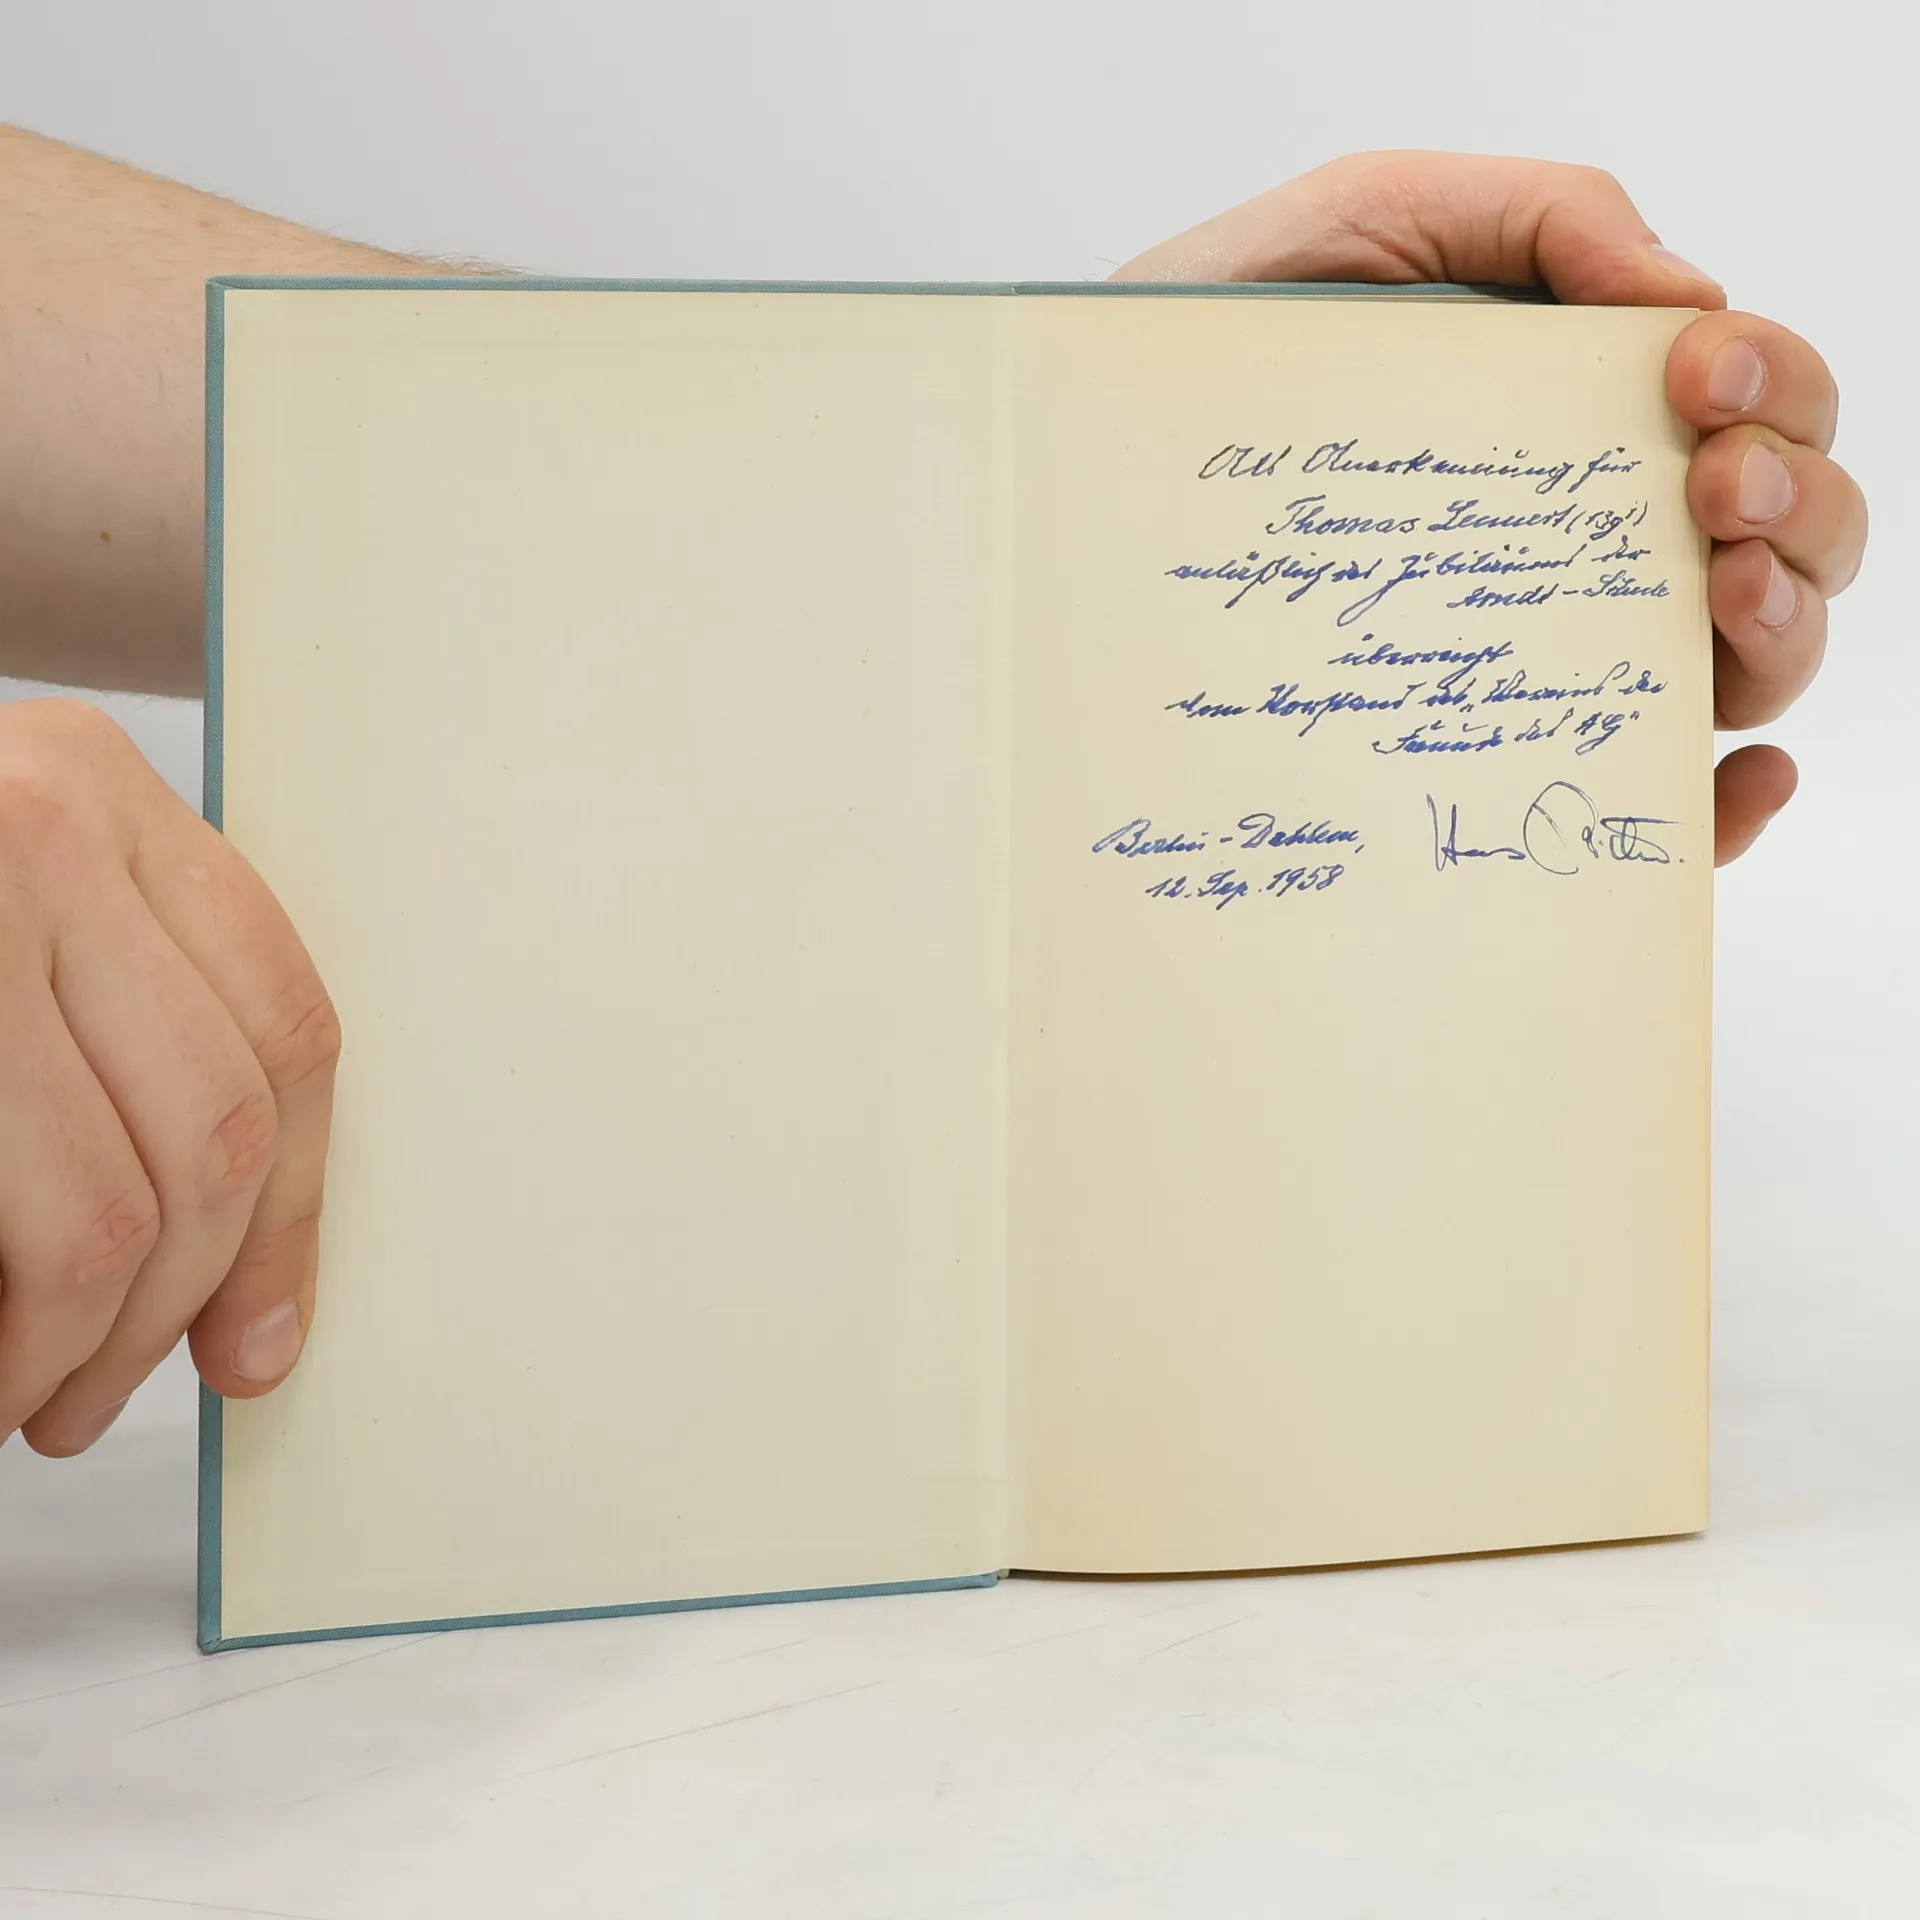 Als Anerkennung für
Thomas Lennert (13gⁱ)
anläßlich des Jubiläums der
Arndt-Schule
überreicht
vom Vorstand des „Vereins der
Freunde des AG"
Berlin-Dahlem,
12. Sep. 1958
Hans